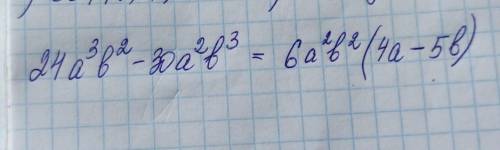 24a³b² - 30a²b³ = 6a²b²(4a - 5b)